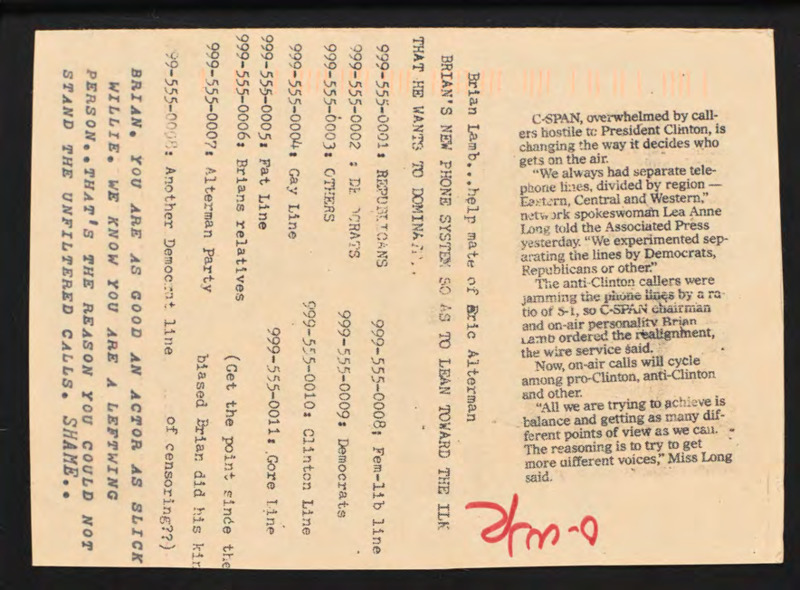 C-SPAN, overwhelmed by call-
ers hostile to President Clinton, is
changing the way it decides who
gets on the air.
"We always had separate tele-
phone lines, divided by region —
Eastern, Central and Western,"
network spokeswoman Lea Anne
Long told the Associated Press
yesterday. "We experimented sep-
arating the lines by Democrats,
Republicans or other."
The anti-Clinton callers were
jamming the phone lines by a ra-
tio of 5-1, so C-SPAN chairman
and on-air personality Brian
Lamb ordered the realignment,
the wire service said.
Now, on-air calls will cycle
among pro-Clinton, anti-Clinton
and other.
"All we are trying to achieve is
balance and getting as many dif-
ferent points of view as we can.
The reasoning is to try to get
more different voices," Miss Long
said.
Brian Lamb...help mate of Eric Alterman
BRIAN'S NEW PHONE SYSTEM SO AS TO LEAN TOWARD THE ILK
THAT HE WANTS TO
999-555-0001: REPUBLICANS 999-555-0008: Fem-lib line
999-555-0002 : DEMOCRATS 999-555-0009: Democrats
999-555-0003: OTHERS 999-555-0010: Clinton Line
999-555-0004: Gay Line 999-555-0011: Gore Line
999-555-0005: Fat Line
999-555-0006: Brians relatives (Get the point since the
999-555-0007: Alterman Party biased Brian did his kin
99-555-0008: Another Democrat line of censoring??)
BRIAN. YOU ARE AS GOOD AN ACTOR AS SLICK
WILLIE. WE KNOW YOU ARE A LEFTWING
PERSON..THAT'S THE REASON YOU COULD NOT
STAND THE UNFILTERED CALLS. SHAME..